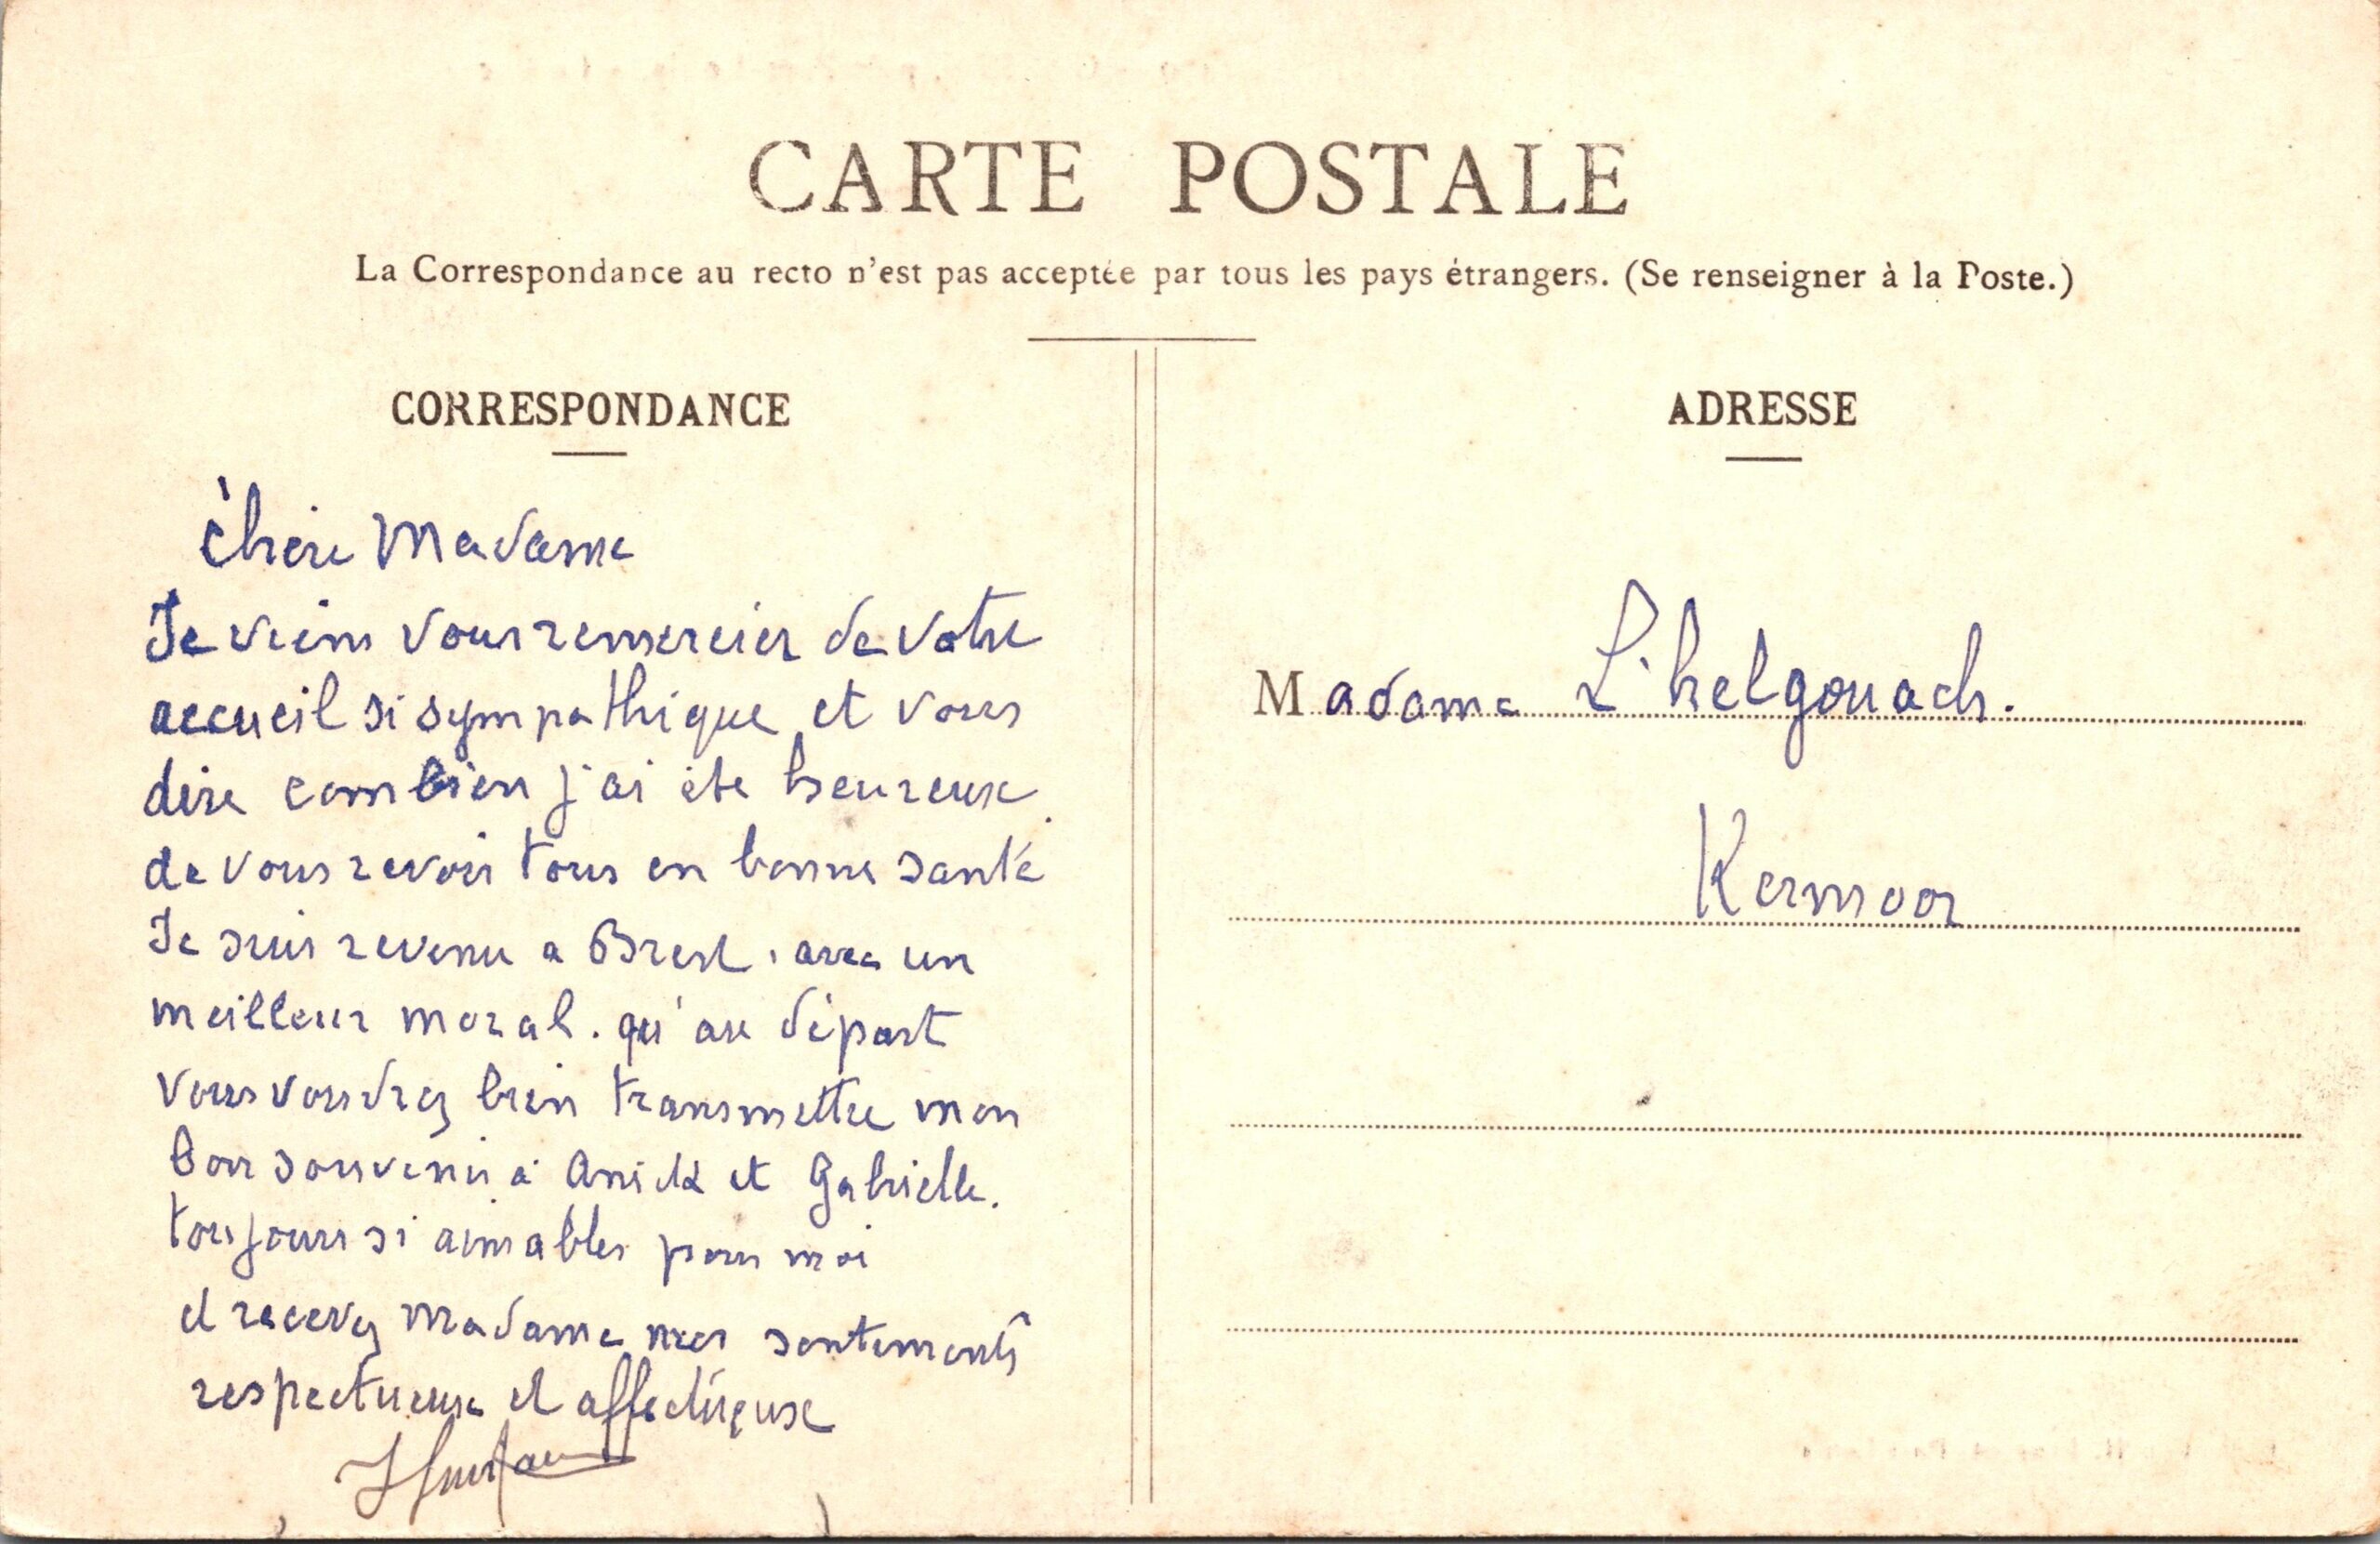 CARTE POSTALE
La Correspondance au recto n'est pas acceptée par tous les pays étrangers. (Se renseigner à la Poste.)
CORRESPONDANCE
Chère Madame
Je viens vous remercier de votre
accueil si sympathique et vous
dire combien j'ai été heureux
de vous revoir tous en bonne santé
Je suis revenu a Brest. avec un
meilleur moral. qu'au départ
vous voudrez bien transmettre mon
bon souvenir à Anick et Gabrielle.
toujours si aimables pour moi
et recevez Madame mes sentiments
respectueux et affectueux
ADRESSE
Madame L'helgouach.
Kermoor